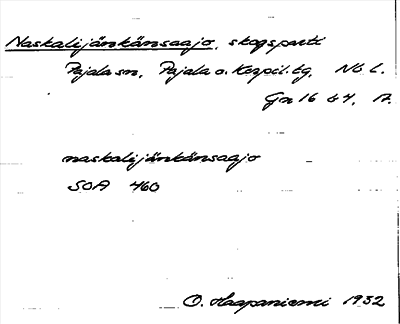 Naskalijänkänsaajo, skogsparti
Pajala sn, Pajala o. Korpil. tg, Nb. L.
Gn 16 64, A.
naskalijänkänsaajo
SOA 460
O. Haapaniemi 1932